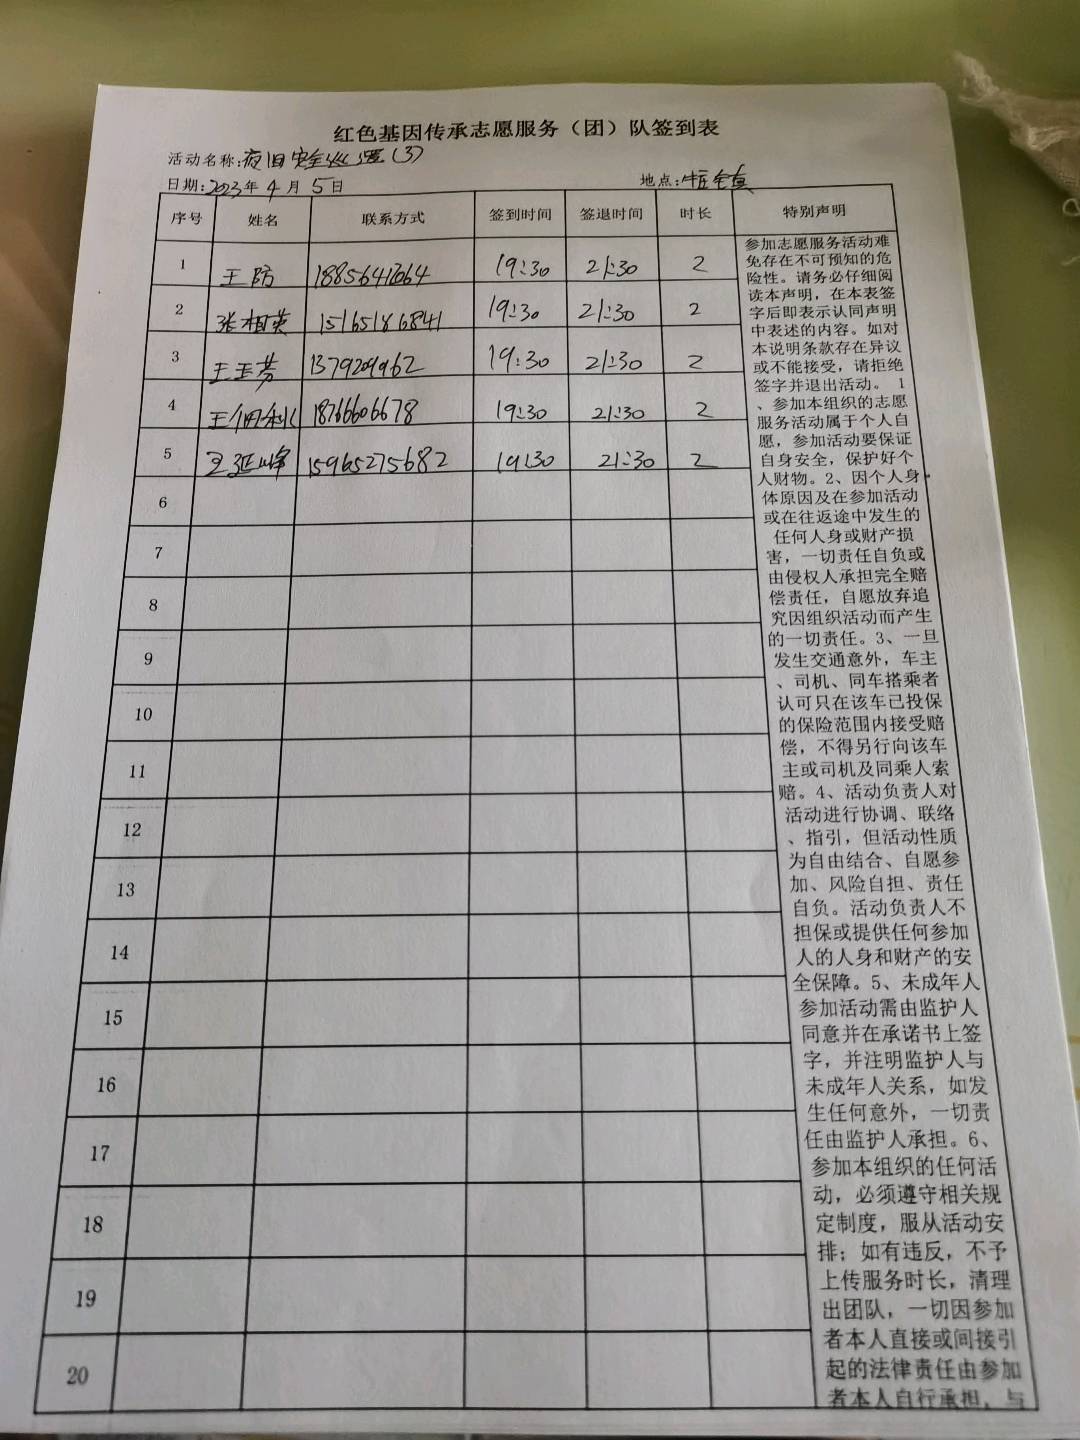 红色基因传承志愿服务（团）队签到表
活动名称:夜间安全巡逻(3)
日期:2023年4月5日 地点:
序号 姓名 联系方式 签到时间 签退时间 时长 特别声明
1 王防 19:30 21:30 2
2 张相英 15165186841 19:30 21:30 2
3 王玉芳 19:30 21:30 2
4 18766606678 19:30 21:30 2
5 王延峰 15965275682 19:30 21:30 2
6
7
8
9
10
11
12
13
14
15
16
17
18
19
20
参加志愿服务活动难
免存在不可预知的危
险性。请务必仔细阅
读本声明，在本表签
字后即表示认同声明
中表述的内容。如对
本说明条款存在异议
或不能接受，请拒绝
签字并退出活动。 1
、参加本组织的志愿
服务活动属于个人自
愿，参加活动要保证
自身安全，保护好个
人财物。2、因个人身
体原因及在参加活动
或在往返途中发生的
任何人身或财产损
害，一切责任自负或
由侵权人承担完全赔
偿责任，自愿放弃追
究因组织活动而产生
的一切责任。3、一旦
发生交通意外，车主
、司机、同车搭乘者
认可只在该车已投保
的保险范围内接受赔
偿，不得另行向该车
主或司机及同乘人索
赔。4、活动负责人对
活动进行协调、联络
、指引，但活动性质
为自由结合、自愿参
加、风险自担、责任
自负。活动负责人不
担保或提供任何参加
人的人身和财产的安
全保障。5、未成年人
参加活动需由监护人
同意并在承诺书上签
字，并注明监护人与
未成年人关系，如发
生任何意外，一切责
任由监护人承担。6、
参加本组织的任何活
动，必须遵守相关规
定制度，服从活动安
排；如有违反，不予
上传服务时长，清理
出团队，一切因参加
者本人直接或间接引
起的法律责任由参加
者本人自行承担，与